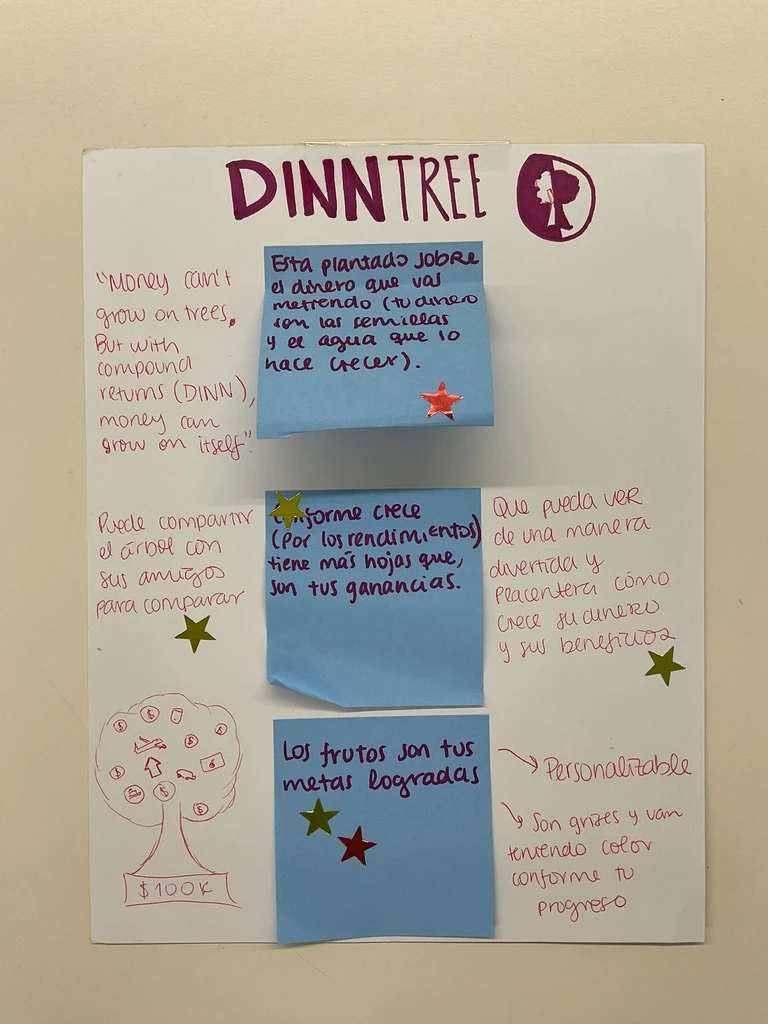 DINNTREE
"Money can't
grow on trees.
But with
compound
returns (DINN),
money can
grow on itself"
Esta plantado sobre
el dinero que vas
metiendo (tu dinero
son las semillas
y el agua que lo
hace crecer).
Puede compartir
el árbol con
sus amigos
para comparar
Conforme crece
(Por los rendimientos)
tiene más hojas que,
son tus ganancias.
Que pueda VER
de una manera
divertida y
placentera cómo
crece su dinero
y sus beneficios
$100K
Los frutos son tus
metas logradas
Personalizable
Son grises y van
teniendo color
conforme tu
progreso